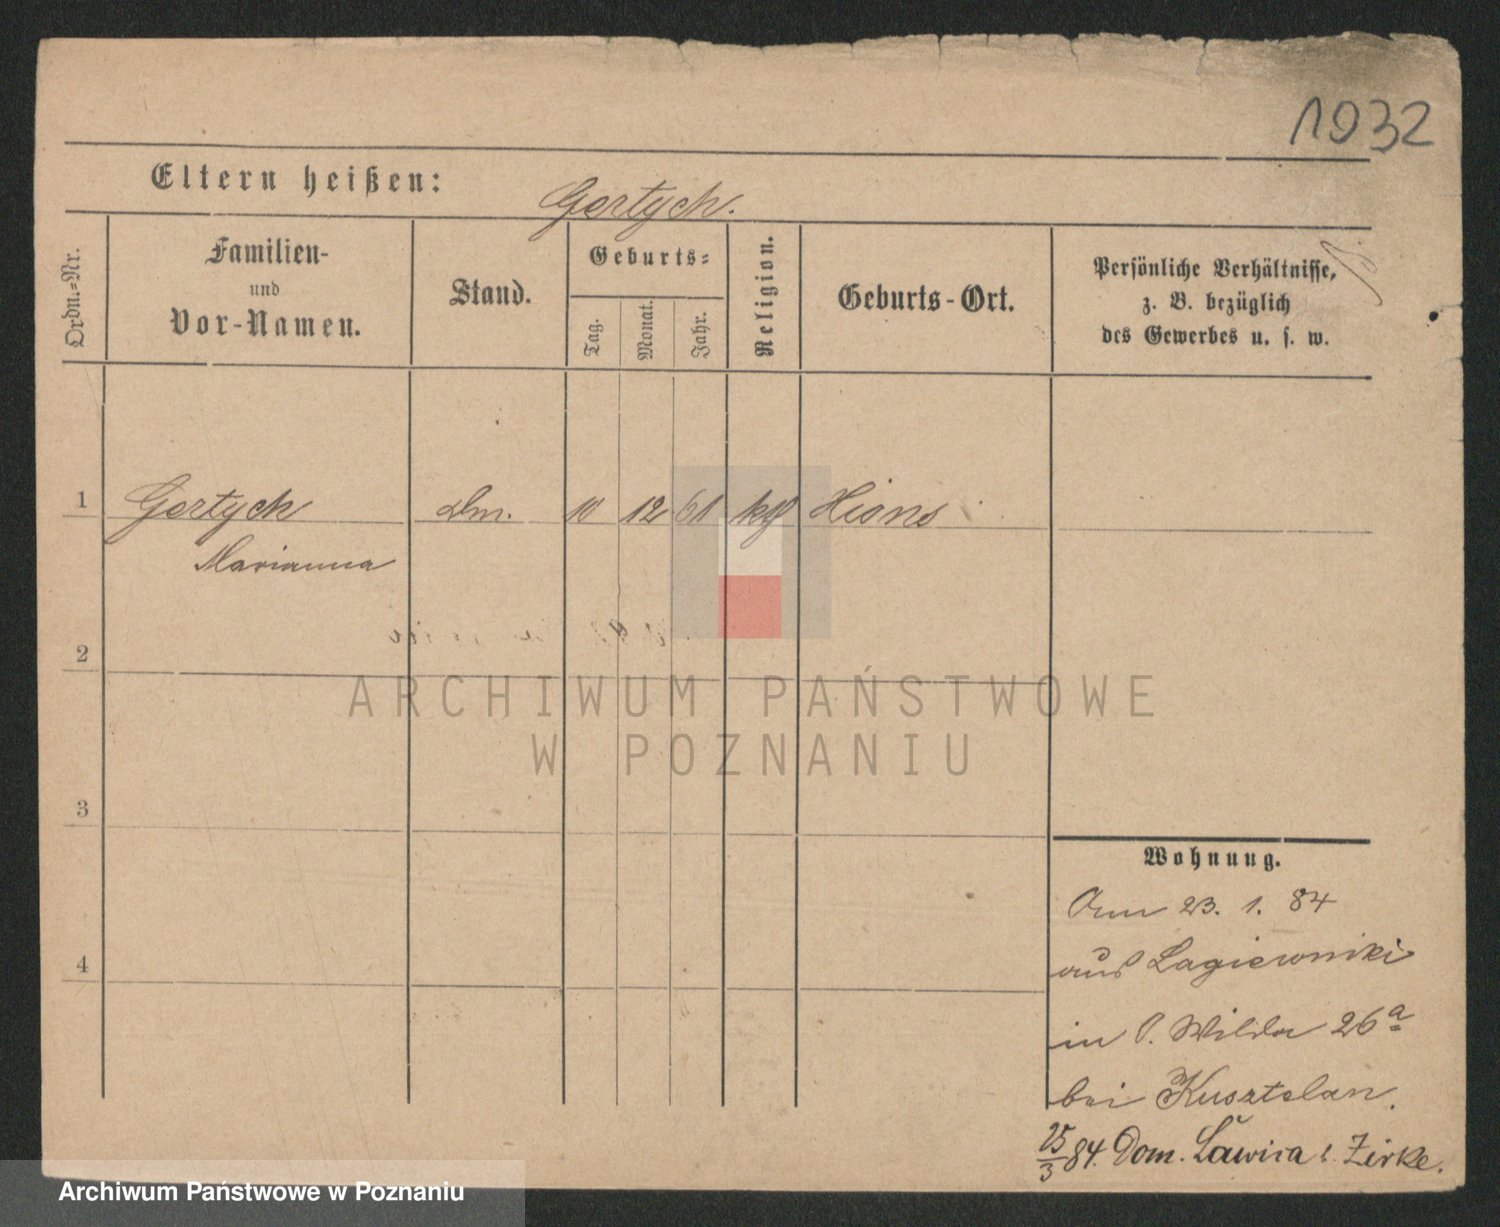 1932
Eltern heißen:
Gertych.
Ordn.=Nr.
Familien-
und
Vor-Namen.
Stand.
Geburts=
Tag.
Monat.
Jahr.
Religion.
Geburts-Ort.
Persönliche Verhältnisse,
z. B. bezüglich
des Gewerbes u. s. w.
1 Gertych Dm. 10 12 61 kg Xions
Marianna
2
3
4
Wohnung.
Am 23. 1. 84
aus Lagiewniki
in O. Wilda 26a
bei Kusztelan.
25/3 84. Dom. Lawica b. Zirke.
ARCHIWUM PAŃSTWOWE
W POZNANIU
Archiwum Państwowe w Poznaniu